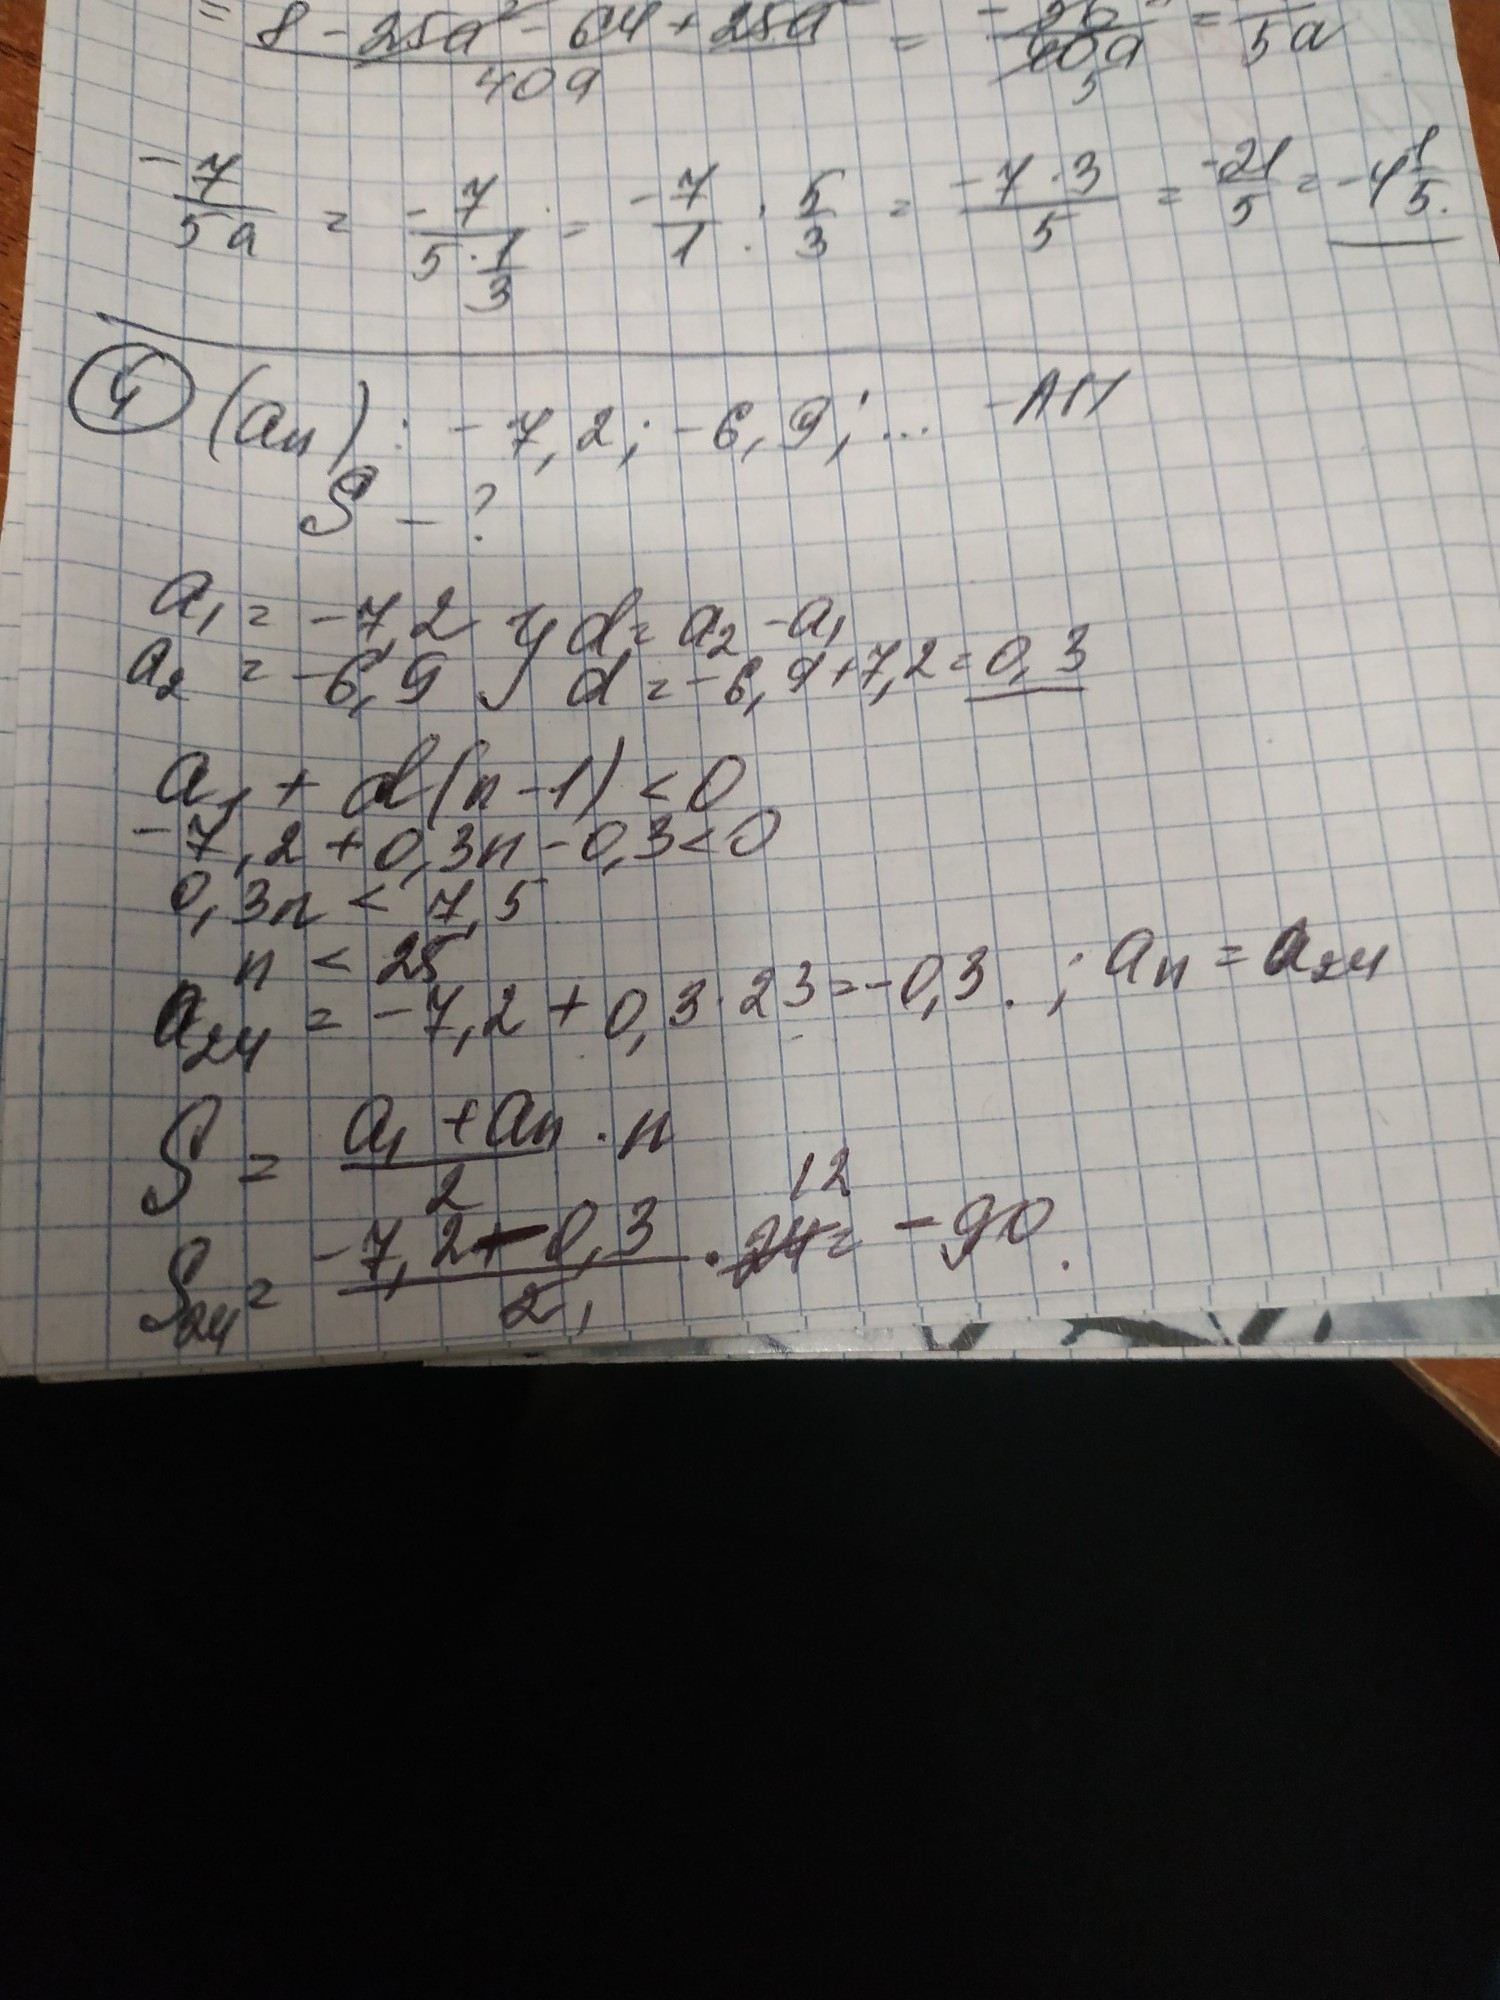 = 8 - 25a² - 64 + 25a² / 40a = - 56 / 40a 5 = / 5a
-7/5a = -7/(5·1/3) = -7/1 : 5/3 = -7·3/5 = -21/5 = -4 1/5.
④ (an): -7,2; -6,9; ... - АП
S - ?
a₁ = -7,2 } d = a₂ - a₁
a₂ = -6,9 } d = -6,9 + 7,2 = 0,3
a₁ + d(n-1) < 0
-7,2 + 0,3n - 0,3 < 0
0,3n < 7,5
n < 25
a₂₄ = -7,2 + 0,3·23 = -0,3. ; an = a₂₄
S = (a₁ + an)/2 · n
S₂₄ = (-7,2 - 0,3)/2, · 24 12 = -90.